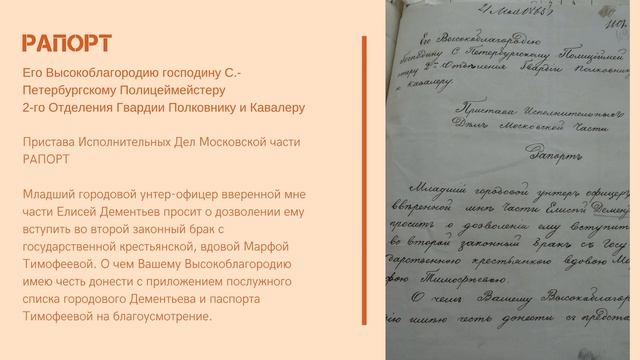 РАПОРТ
Его Высокоблагородию господину С.-
Петербургскому Полицеймейстеру
2-го Отделения Гвардии Полковнику и Кавалеру
Пристава Исполнительных Дел Московской части
РАПОРТ
Младший городовой унтер-офицер вверенной мне
части Елисей Дементьев просит о дозволении ему
вступить во второй законный брак с
государственной крестьянской, вдовой Марфой
Тимофеевой. О чем Вашему Высокоблагородию
имею честь донести с приложением послужного
списка городового Дементьева и паспорта
Тимофеевой на благоусмотрение.
Его Высокоблагородію
Господину С Петербургскому Полицеймей
стеру 2го Отделенія Гвардіи Полковник
и Кавалеру.
Пристава Исполнительныхъ
Дѣлъ Московской Части
Рапортъ
Младшій городовой унтеръ офицеръ
ввѣренной мнѣ Части Елисей Демен
проситъ о дозволеніи ему вступить
во второй законный бракъ съ Госу
дарственною крестьянкою вдовою Ма
фою Тимофѣевою.
О чемъ Вашему Высокоблагор
ію имѣю честь донести съ предста